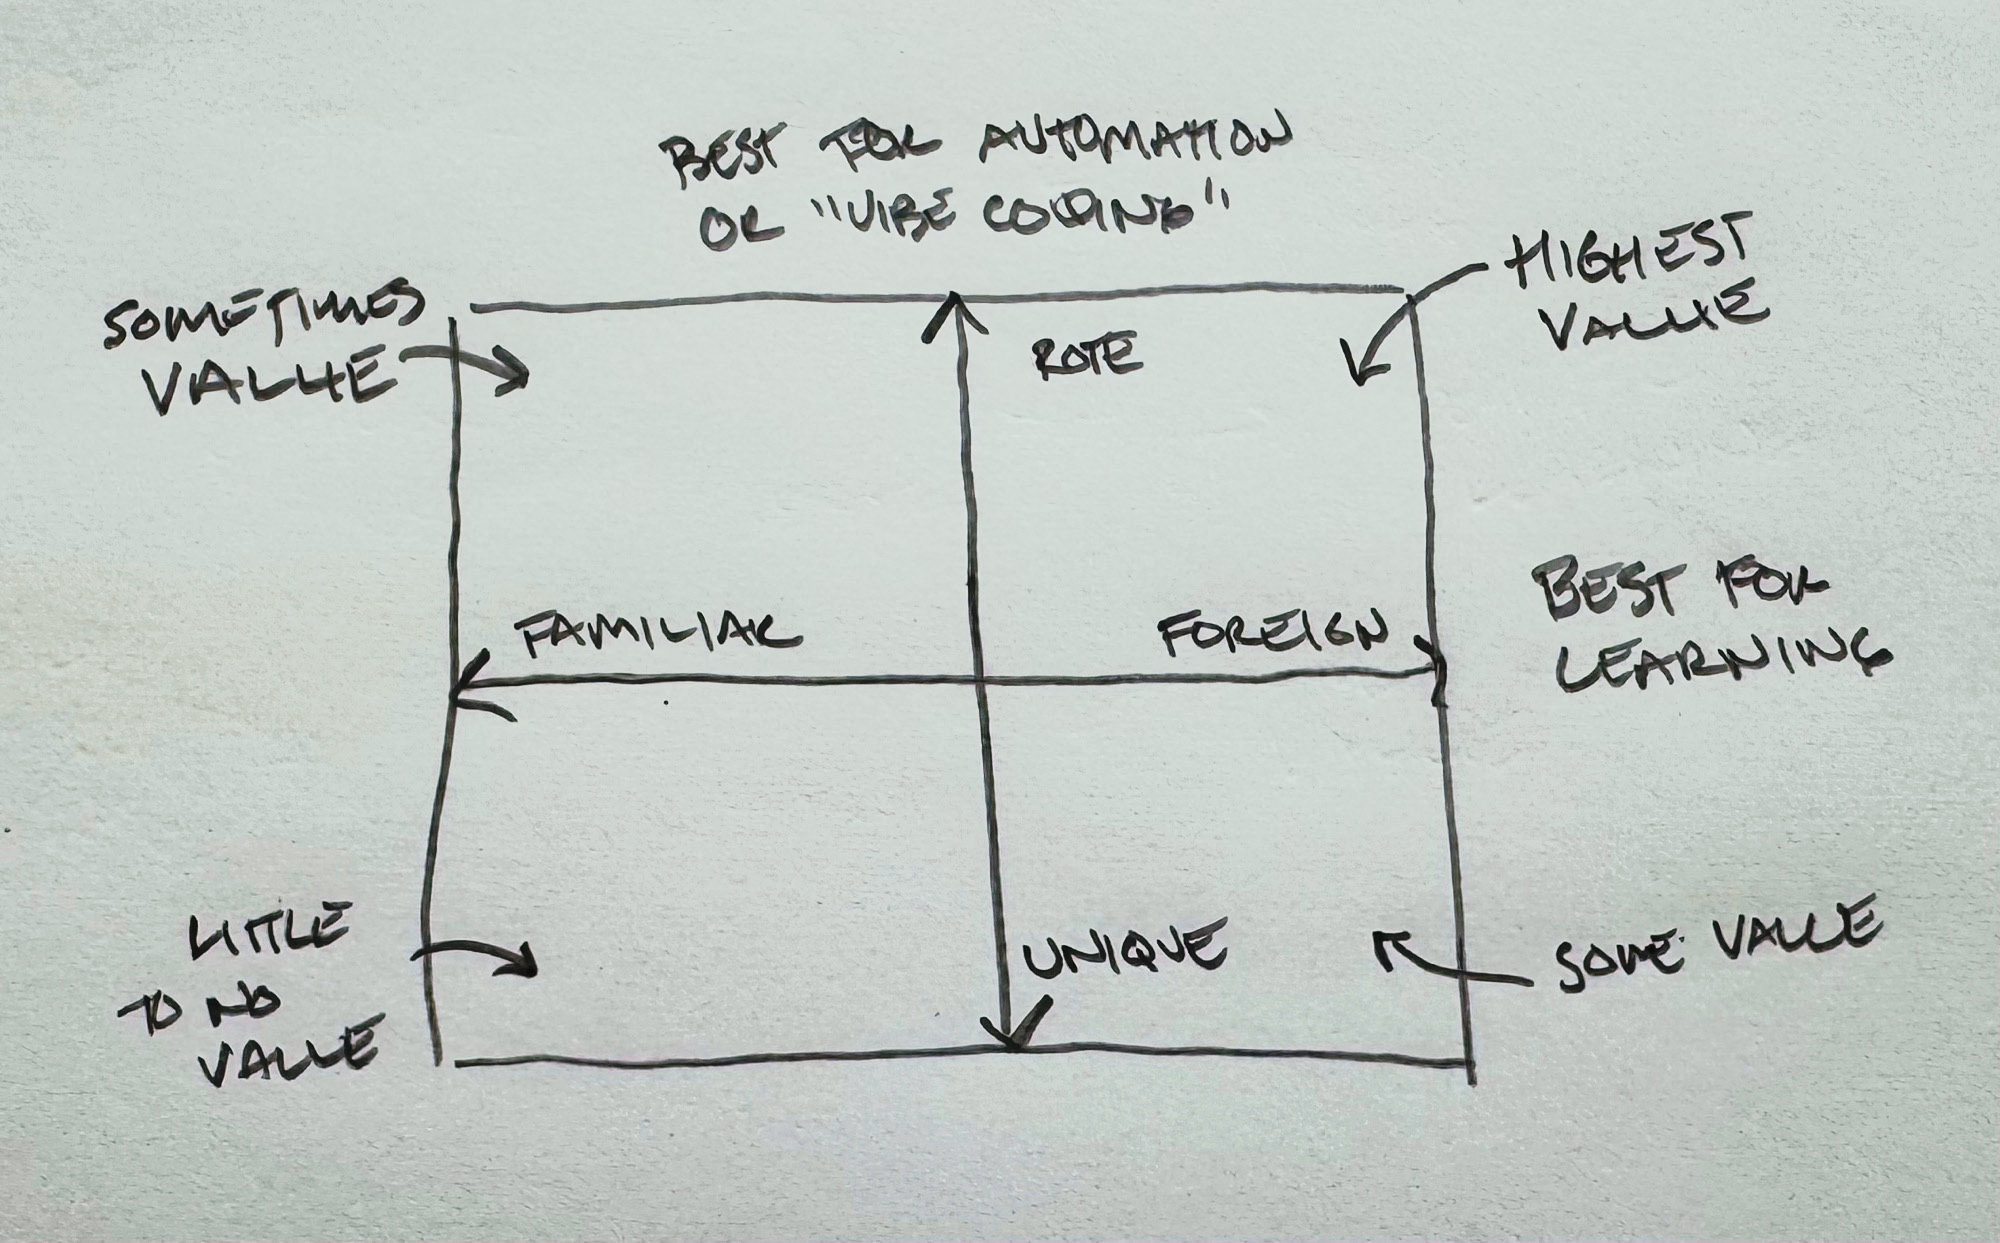 BEST FOR AUTOMATION
OR "VIBE CODING"
SOMETIMES
VALUE
HIGHEST
VALUE
ROTE
FAMILIAR
FOREIGN
BEST FOR
LEARNING
LITTLE
TO NO
VALUE
UNIQUE
SOME VALUE